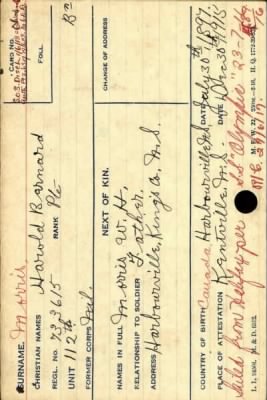 SURNAME. Morris
CHRISTIAN NAMES Harold Barnard
REGL. NO. 733615 RANK Pte
UNIT 112th
FORMER CORPS Nil.
CARD NO.
FOLL.
NEXT OF KIN.
CHANGE OF ADDRESS
NAMES IN FULL Morris W. H.
RELATIONSHIP TO SOLDIER Father.
ADDRESS Harbourville, Kings Co., N.S.
COUNTRY OF BIRTH Canada Harbourville N.S. DATE July 30th 1897
PLACE OF ATTESTATION Kentville, N.S. DATE Dec 30th 1915
Sailed from Halifax per S.S. "Olympic" 23-7-